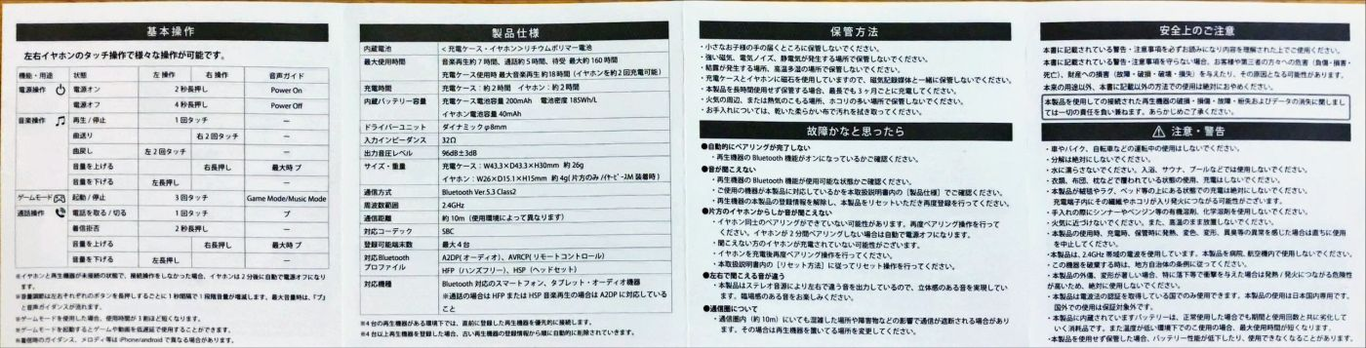 基本操作
左右イヤホンのタッチ操作で様々な操作が可能です。
機能・用途 状態 左 操作 右 操作 音声ガイド
電源操作 電源オン 2秒長押し Power On
電源オフ 4秒長押し Power Off
音楽操作 再生/停止 1回タッチ ー
曲送り 右2回タッチ ー
曲戻し 左2回タッチ ー
音量を上げる 右長押し 最大時 プ
音量を下げる 左長押し ー
ゲームモード 起動/停止 3回タッチ Game Mode/Music Mode
通話操作 電話を取る/切る 1回タッチ プ
着信拒否 2秒長押し ー
音量を上げる 右長押し 最大時 プ
音量を下げる 左長押し ー
※イヤホンと再生機器が未接続の状態で、接続操作をしなかった場合、イヤホンは2分後に自動で電源オフになります。
※音量調節は左右それぞれのボタンを長押しするごとに1秒間隔で1段階音量が増減します。最大音量時は、「プ」と音声ガイダンスが流れます。
※ゲームモードを使用した場合、使用時間が3割ほど短くなります。
※ゲームモードを起動するとゲームや動画を低遅延で使用することができます。
※着信時のガイダンス、メロディ等はiPhoneやandroidで異なる場合があります。
製品仕様
内蔵電池 <充電ケース・イヤホン>リチウムポリマー電池
最大使用時間 音楽再生約7時間、通話約5時間、待受 最大約160時間
充電ケース使用時 最大音楽再生 約18時間(イヤホンを約2回充電可能)
充電時間 充電ケース:約2時間 イヤホン:約2時間
内蔵バッテリー容量 充電ケース電池容量 200mAh 電池密度 185Wh/L
イヤホン電池容量 40mAh
ドライバーユニット ダイナミックφ8mm
入力インピーダンス 32Ω
出力音圧レベル 96dB±3dB
サイズ・重量 充電ケース:W43.3×D43.3×H30mm 約26g
イヤホン:W26×D15.1×H15mm 約4g(片方のみ/イヤピースM装着時)
通信方式 Bluetooth Ver 5.3 Class2
周波数範囲 2.4GHz
通信距離 約10m(使用環境によって異なります)
対応コーデック SBC
登録可能端末数 最大4台
対応Bluetooth A2DP(オーディオ)、AVRCP(リモートコントロール)
プロファイル HFP(ハンズフリー)、HSP(ヘッドセット)
対応機種 Bluetooth対応のスマートフォン、タブレット・オーディオ機器
※通話の場合はHFPまたはHSP音楽再生の場合はA2DPに対応していること
※4台の再生機器がある環境下では、直前に登録した再生機器を優先的に接続します。
※4台以上再生機器を登録した場合、古い再生機器の登録情報から順に自動的に削除されていきます。
保管方法
・小さなお子様の手の届くところに保管しないでください。
・強い磁気、電気ノイズ、静電気が発生する場所で保管しないでください。
・結露が発生する場所、高温多湿の場所で保管しないでください。
・充電ケースとイヤホンに磁石を使用していますので、磁気記録媒体と一緒に保管しないでください。
・本製品を長時間使用せず保管する場合、最長でも3ヶ月ごとに充電してください。
・火気の周辺、または熱気のこもる場所、ホコリの多い場所で保管しないでください。
・お手入れについては、乾いた柔らかい布で汚れを拭き取ってください。
故障かなと思ったら
●自動的にペアリングが完了しない
・再生機器のBluetooth機能がオンになっているかご確認ください。
●音が聞こえない
・再生機器のBluetooth機能が使用可能な状態かご確認ください。
・ご使用の機器が本製品に対応しているかを本取扱説明書内の【製品仕様】でご確認ください。
・再生機器の本製品の登録情報を解除し、本製品をリセットいただき再度登録を行ってください。
●片方のイヤホンからしか音が聞こえない
・イヤホン同士のペアリングができていない可能性があります。再度ペアリング操作を行ってください。イヤホンが2分間ペアリングしない場合は自動で電源オフになります。
・聞こえない方のイヤホンが充電されていない可能性がございます。
・イヤホンを充電後再度ペアリング操作を行ってください。
・本取扱説明書内の[リセット方法]に従ってリセット操作を行ってください。
●左右で聞こえる音が違う
・本製品はステレオ音源により左右で違う音を出力しているので、立体感のある音を実現しています。臨場感のある音をお楽しみください。
●通信圏について
・通信圏内(約10m)にいても混雑した場所や障害物などの影響で通信が遮断される場合があります。その場合は再生機器を置いてる場所を変更してください。
安全上のご注意
本書に記載されている警告・注意事項を必ずお読みになり内容を理解された上でご使用ください。
本書に記載されている警告・注意事項を守らない場合、お客様や第三者の方々への危害(負傷・損害・死亡)、財産への損害(故障・破損・破壊・損失)を与えたり、その原因となる可能性があります。
本来の用途以外、本書に記載以外の方法での使用は絶対におやめください。
本製品を使用しての接続された再生機器の破損・損傷・故障・紛失およびデータの消失に関しましては一切の責任を負い兼ねます。あらかじめご了承ください。
注意・警告
・車やバイク、自転車などの運転中の使用はしないでください。
・分解は絶対にしないでください。
・水に濡らさないでください。入浴、サウナ、プールなどでは使用しないでください。
・衣類、布団、枕などで覆われている状態の使用、充電はしないでください。
・本製品が絨毯やラグ、ベッド等の上にある状態での充電は絶対にしないでください。
充電端子内にその繊維やホコリが入り発火につながる可能性がございます。
・手入れの際にシンナーやベンジン等の有機溶剤、化学溶剤を使用しないでください。
・火気に近づけないでください。また、高温のまま放置しないでください。
・本製品の使用時、充電時、保管時に発熱、変色、変形、異臭等の異常を感じた場合は直ちに使用を中止してください。
・本製品は、2.4GHz帯域の電波を使用しています。本製品を病院、航空機内で使用しないでください。
・この機器を破棄する時は、地方自治体の条例に従ってください。
・本製品の外傷、変形が著しい場合、特に落下等で衝撃を与えた場合は発熱/発火につながる危険性が高いため、絶対に使用しないでください。
・本製品は電波法の認証を取得している国でのみ使用できます。本製品の使用は日本国内専用です。
国外での使用は保証対象外です。
・本製品に内蔵されているバッテリーは、正常使用した場合でも期間と使用回数と共に劣化していく消耗品です。また温度が低い環境下でのご使用の場合、最大使用時間が短くなります。
・本製品を使用せず保管した場合、バッテリー性能が低下したり、使用できなくなることがあります。